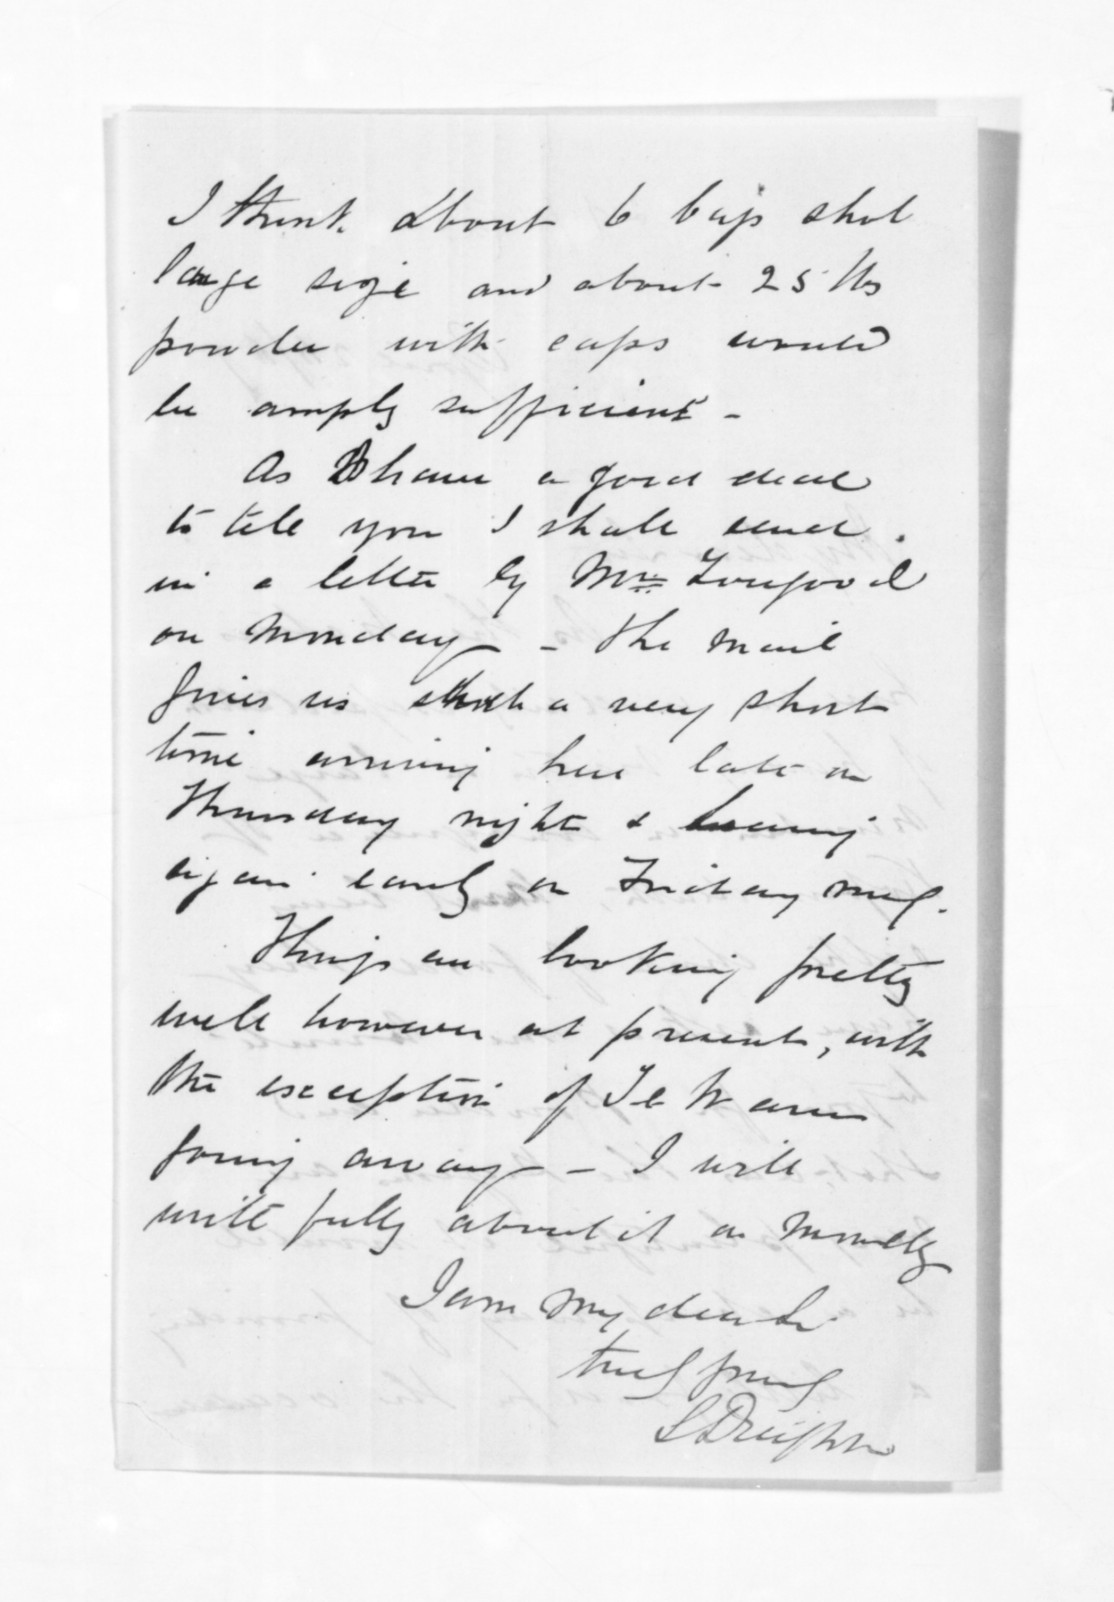 I think about 6 bags shot
large size and about 25 lbs
powder with caps would
be amply sufficient -
As I have a good deal
to tell you I shall send
in a letter by Mrs
on Monday - The mail
gives us such a very short
time arriving here late on
Thursday night & leaving
again early on Friday mng.
Things are looking pretty
well however at present, with
the exception of Te
going away - I will
write fully about it on Monday
I am my dear Sir
truly yours
S Deighton